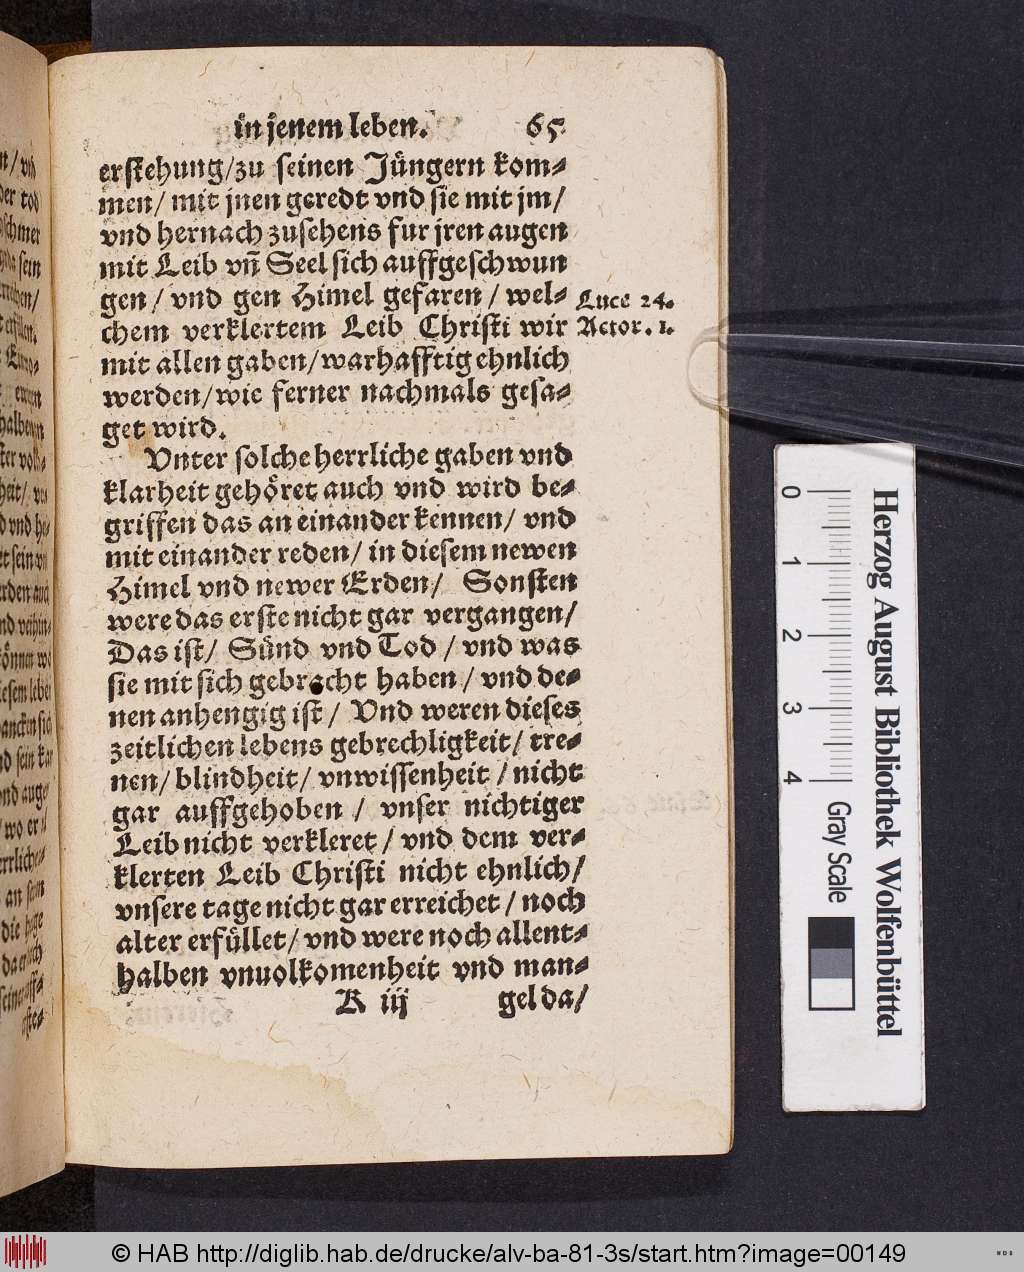 in jenem leben. 65
erstehung/zu seinen Jüngern kom⸗
men/ mit jnen geredt vnd sie mit jm/
vnd hernach zusehens fur jren augen
mit Leib vn̄ Seel sich auffgeschwun
gen/ vnd gen Himel gefaren/ wel⸗
chem verklertem Leib Christi wir
mit allen gaben/warhafftig ehnlich
werden/wie ferner nachmals gesa⸗
get wird.
Luce 24.
Actor. 1.
Vnter solche herrliche gaben vnd
klarheit gehöret auch vnd wird be⸗
griffen das an einander kennen/ vnd
mit einander reden/ in diesem newen
Himel vnd newer Erden/ Sonsten
were das erste nicht gar vergangen/
Das ist/ Sünd vnd Tod/ vnd was
sie mit sich gebracht haben/ vnd de⸗
nen anhengig ist/ Vnd weren dieses
zeitlichen lebens gebrechligkeit/ tre⸗
nen/ blindheit/ vnwissenheit/ nicht
gar auffgehoben/ vnser nichtiger
Leib nicht verkleret/ vnd dem ver⸗
klerten Leib Christi nicht ehnlich/
vnsere tage nicht gar erreichet/ noch
alter erfüllet/ vnd were noch allent⸗
halben vnuolkomenheit vnd man⸗
K iij gel da/
0 1 2 3 4
Gray Scale
Herzog August Bibliothek Wolfenbüttel
© HAB http://diglib.hab.de/drucke/alv-ba-81-3s/start.htm?image=00149